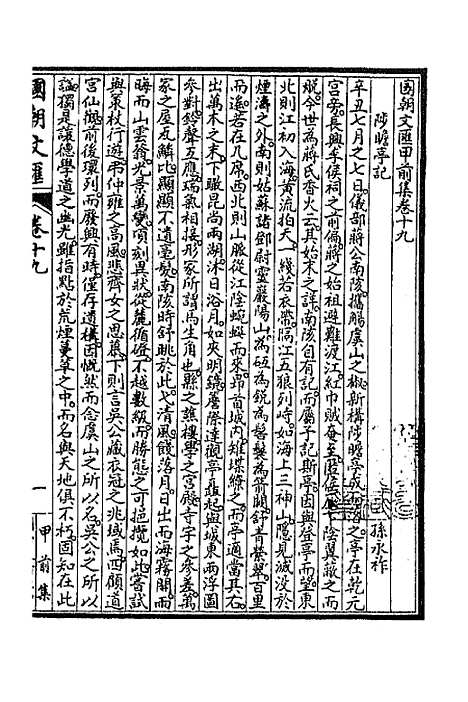 國朝文匯甲前集卷十九
陟瞻亭記
孫永祚
辛丑七月之七日儀部蔣公南陔攜觴虞山之椒新構陟瞻亭成而落之亭在乾元
宮旁長興牟侯祠之前偏蔣之始祖避難渡江紅巾賊奄至侯陰翼蔽之而
脫今世為蔣氏香火云其始末之詳南陔自有記而屬予記斯亭因與登亭而望東
北則江初入海黃流拍天一綫若衣帶隔江五狼列峙如海上三神山隱見滅沒於
煙濤之外南則姑蘇諸鄧尉靈巖陽山為砥為銳為髻鬟為箭闕舒青縈翠百里
而遙若在几席西北則山脈從江陰蜿蜒而來昂首城內雉堞繚之而亭適當其右
出萬木之末下瞰昆尚兩湖沐日浴月如夾明鏡簷際達觀亭矗起與城東兩浮圖
參對鈴聲互應瑞氣相接形家所為馬生角也縣之譙樓學之宮殿寺宇之參差萬
家之屋瓦鱗比顯顯不遺毫髮南陔時舒眺於此弋清風餞落月日出而海霧開雨
晦而山雲翁光景萬變頃刻異狀從麓循磴不越數級而勝能之可挹攬如此嘗試
與策杖行遊弔仲雍之高風悲齊女之思慕下則言吳公藏衣冠之兆域焉四顧道
宮仙觀前後環列而廢興有時僅存遺構因慨然而念虞山之所以名吳公之所以
謚獨是讓德學道之幽光雖指點於荒煙蔓草之中而名與天地俱不朽固知在此
國朝文匯
卷十九
一
甲前集